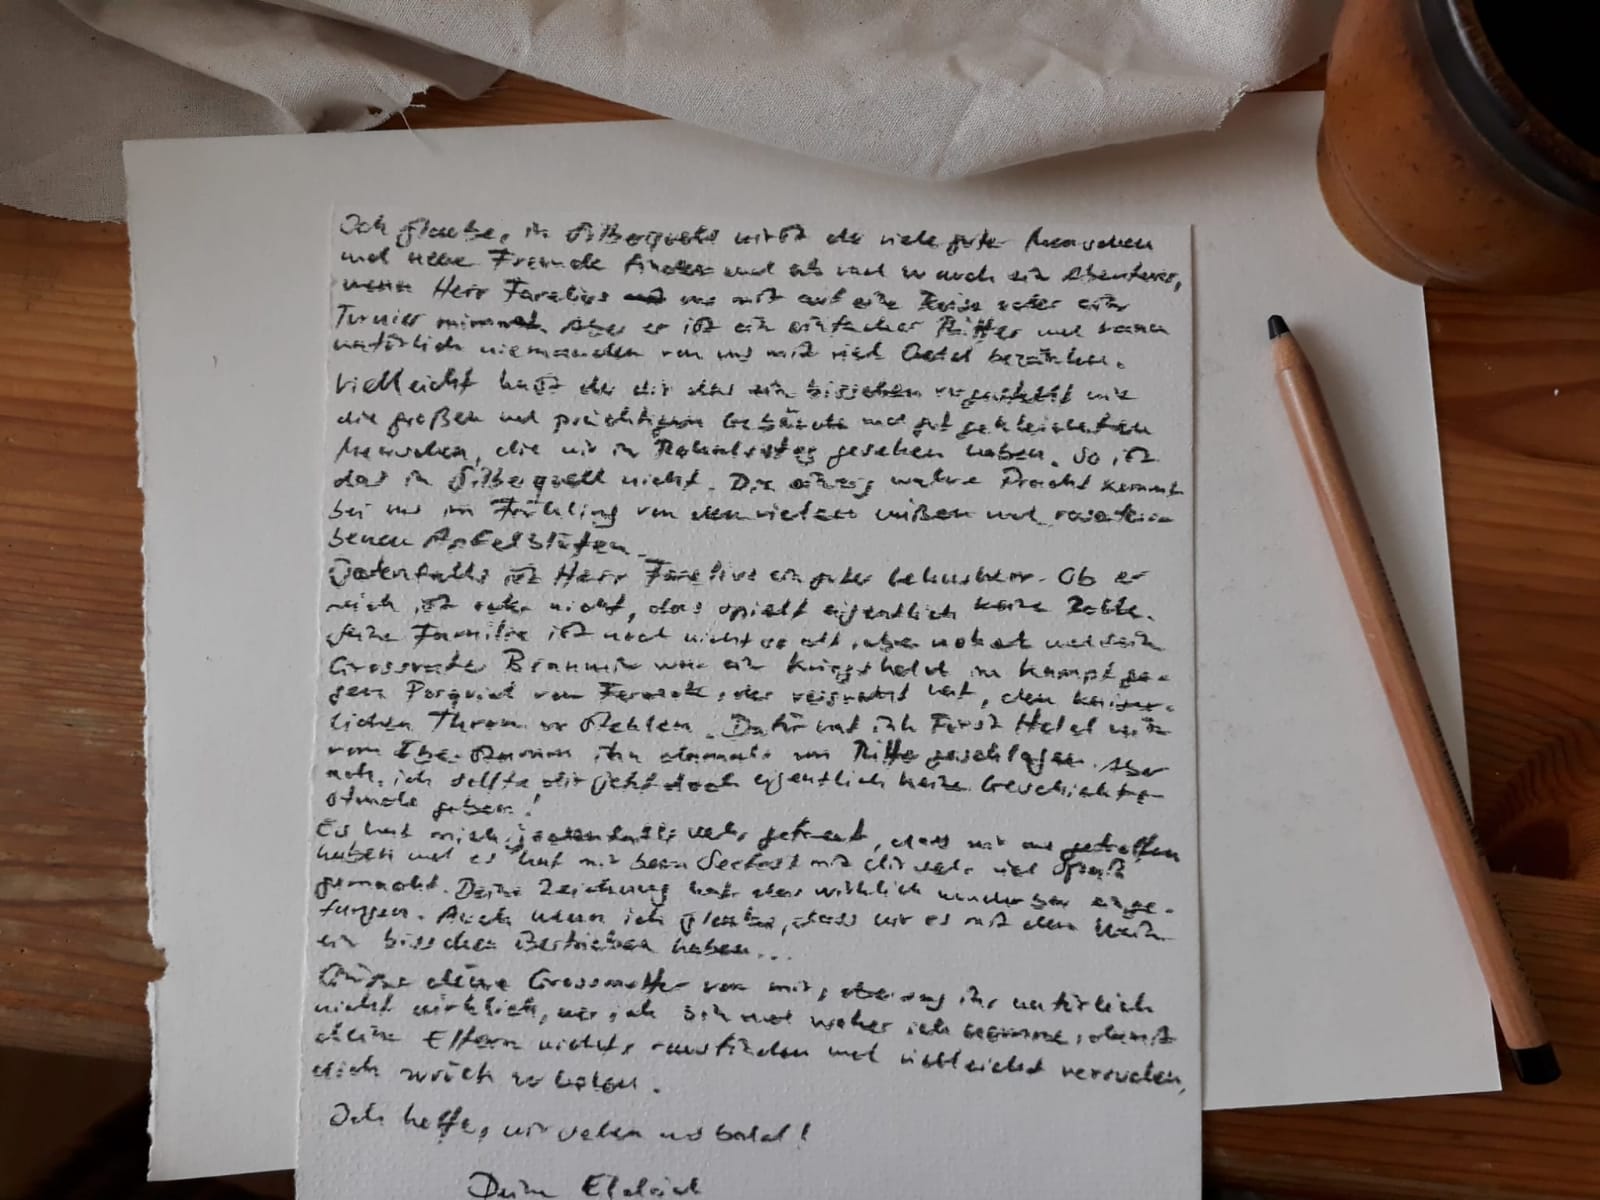 Ich glaube, in Silberquell wirst du viele gute Menschen
und neue Freunde finden und ab und zu auch ein Abenteuer,
wenn Herr Farelius uns mit auf eine Reise oder ein
Turnier nimmt. Aber er ist ein einfacher Ritter und kann
natürlich niemanden von uns mit viel Geld bezahlen.
Vielleicht hast du dir das ein bisschen vorgestellt wie
die großen und prächtigen Gebäude und gut gekleideten
Menschen, die wir in gesehen haben. So ist
das in Silberquell nicht. Die einzig wahre Pracht kommt
bei uns im Frühling von den vielen weißen und
benen Apfelblüten.
Jedenfalls ist Herr Farelius ein guter Lehnsherr. Ob er
reich ist oder nicht, das spielt eigentlich keine Rolle.
Seine Familie ist noch nicht so alt, aber nobel und sein
Grossvater war ein Kriegsheld im Kampf ge-
gen von, der versucht hat, den kaiser-
lichen Thron zu stehlen. Dafür hat ihn Fürst
vom ihn damals zum Ritter geschlagen. Aber
ach, ich sollte dir jetzt doch eigentlich keine Geschichts-
stunde geben!
Es hat mich jedenfalls sehr gefreut, dass wir uns getroffen
haben und es hat mir beim Seefest mit dir sehr viel Spaß
gemacht. Deine Zeichnung hat das wirklich wunderbar einge-
fangen. Auch wenn ich glaube, dass wir es mit dem Wein
ein bisschen übertrieben haben...
Grüsse deine Grossmutter von mir, aber sag ihr natürlich
nicht wirklich, wer ich bin und woher ich komme, damit
deine Eltern nichts rausfinden und vielleicht versuchen,
dich zurück zu holen.
Ich hoffe, wir sehen uns bald!
Deine